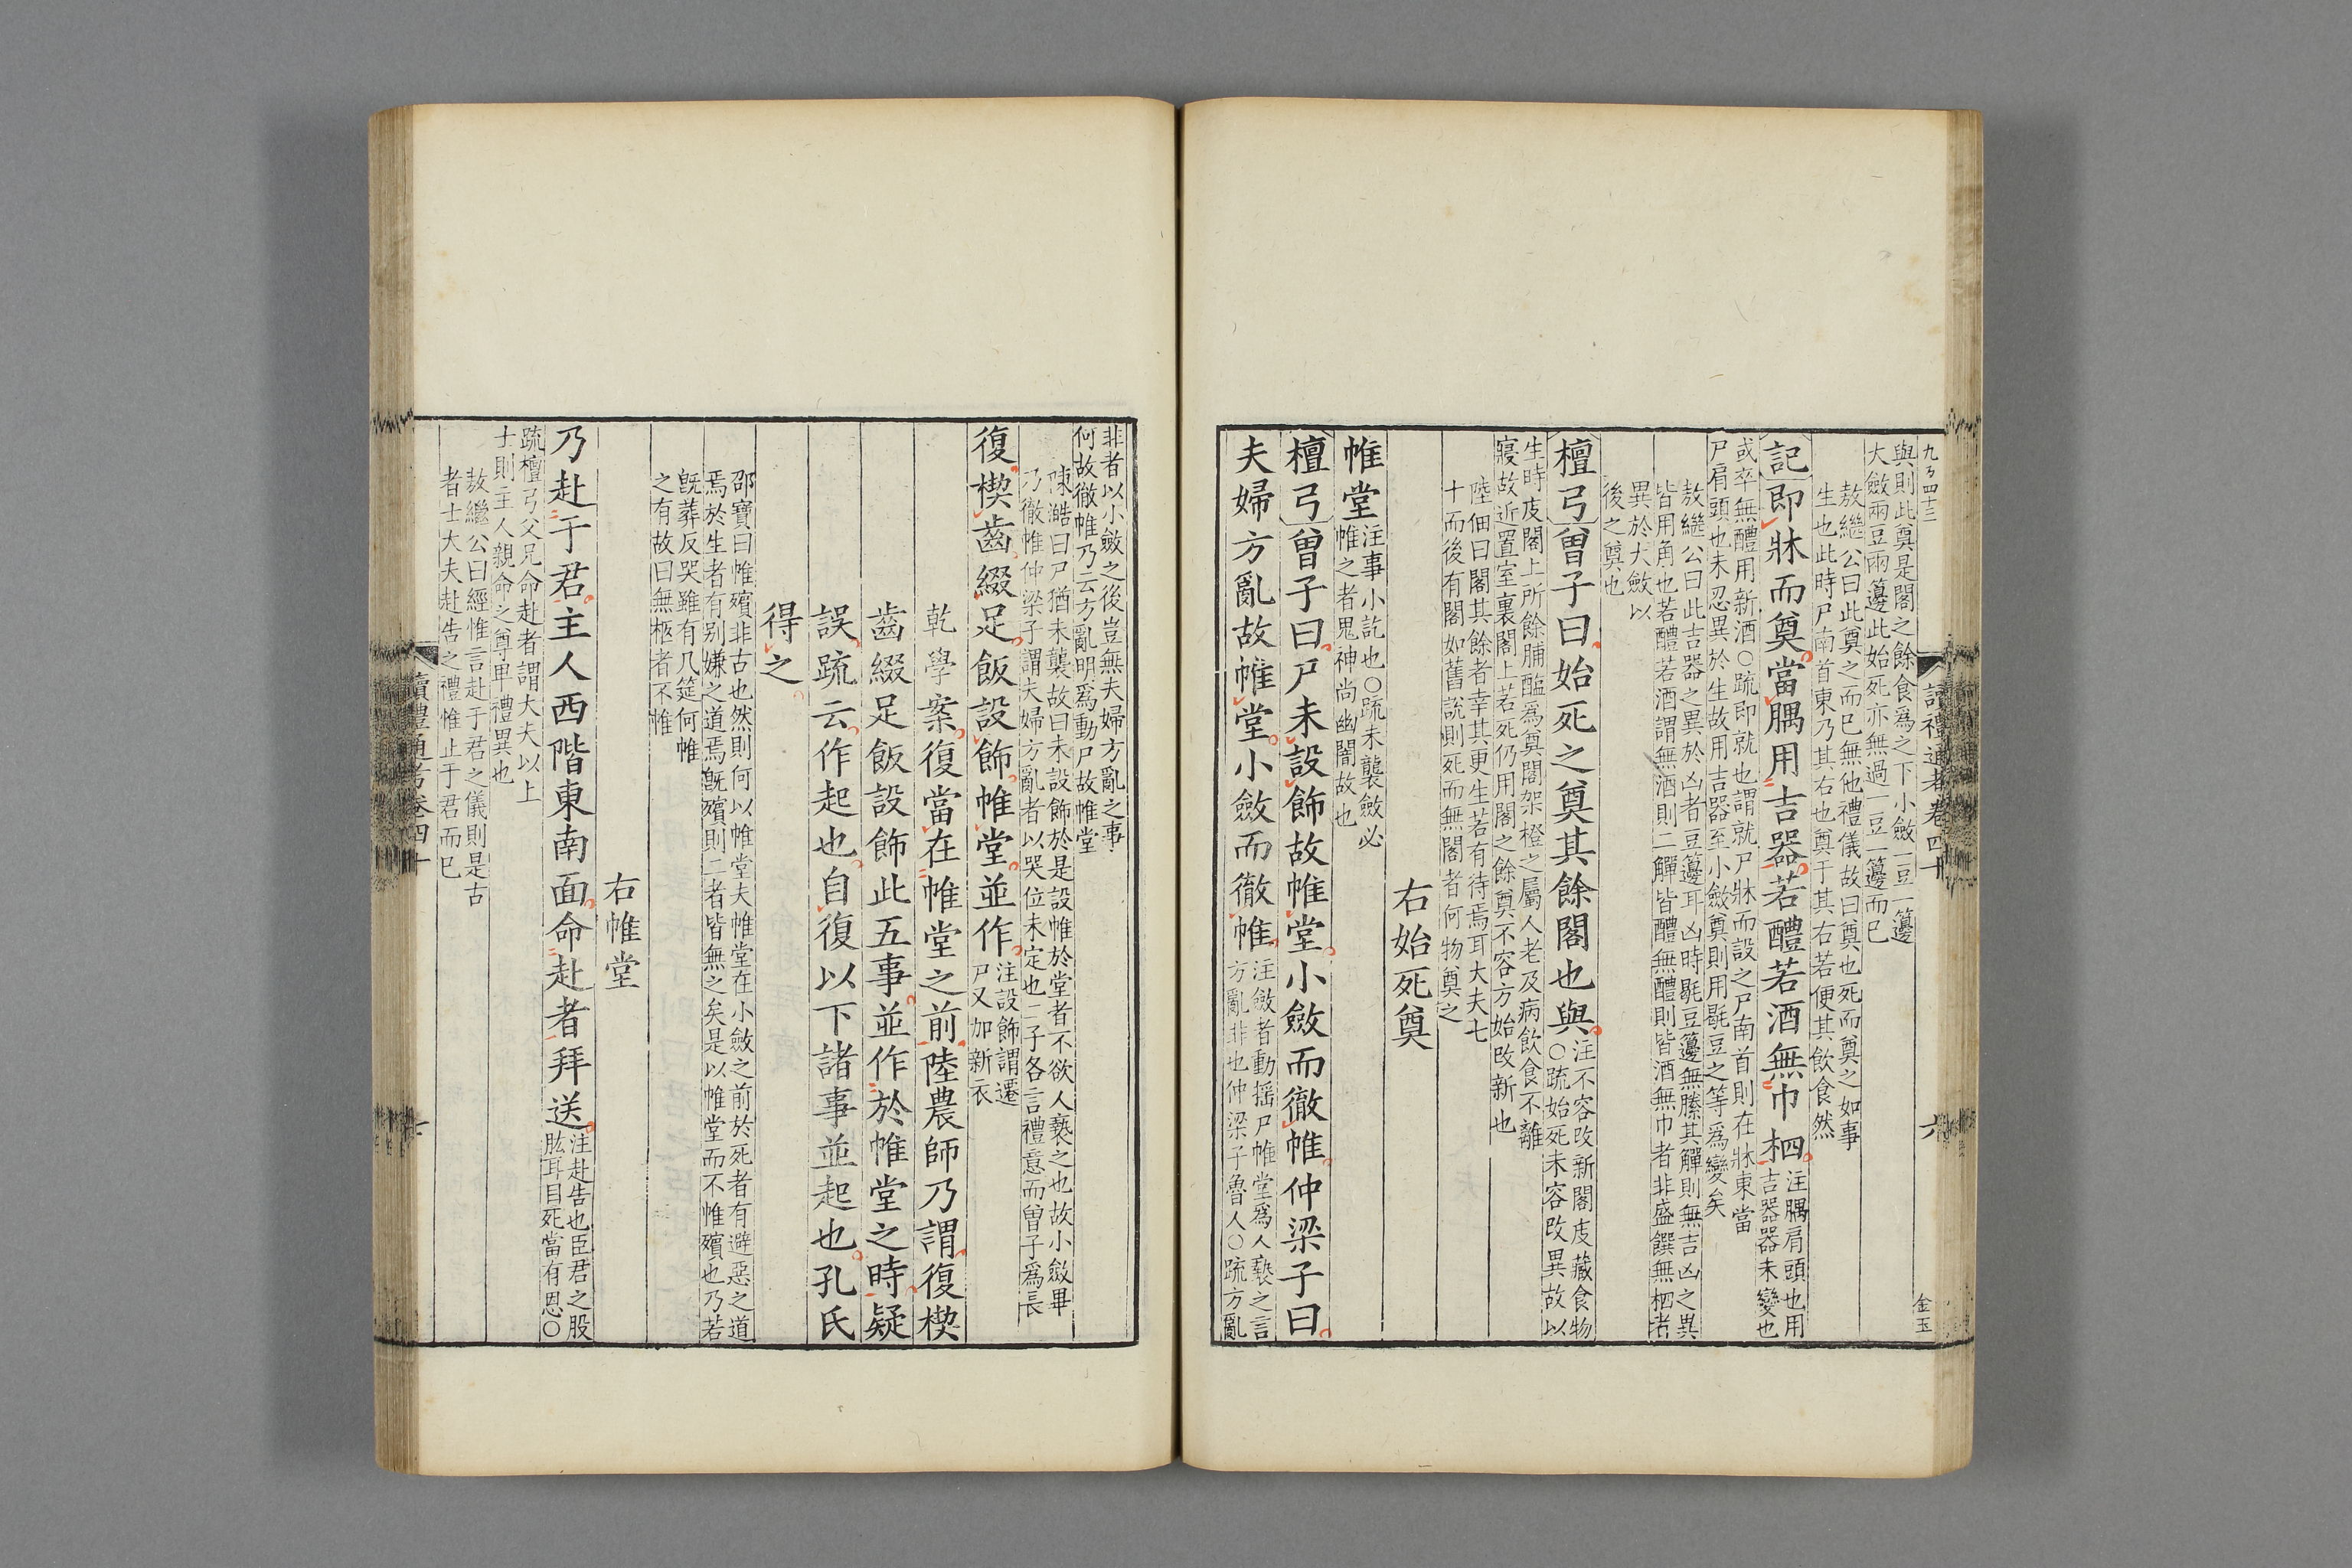 與則此奠是閣之餘食爲之下小斂一豆一籩
大斂兩豆兩籩此始死亦無過一豆一籩而已
敖繼公曰此奠之而已無他禮儀故曰奠也死而奠之如事
生也此時尸南首東乃其右也奠于其右若便其飲食然
記即牀而奠當腢用吉器若醴若酒無巾柶
注腢肩頭也用
吉器器未變也
或卒無醴用新酒○疏即就也謂就尸牀而設之尸南首則在牀東當
尸肩頭也未忍異於生故用吉器至小斂奠則用毼豆之等爲變矣
敖繼公曰此吉器之異於凶者豆籩耳凶時毼豆籩無縢其觶則無吉凶之異
皆用角也若醴若酒謂無酒則二觶皆醴無醴則皆酒無巾者非盛饌無柶者
異於大斂以
後之奠也
檀弓曾子曰始死之奠其餘閣也與
注不容改新閣庋藏食物
○疏始死未容改異故以
生時庋閣上所餘脯醢爲奠閣架橙之屬人老及病飲食不離
寢故近置室裏閣上若死仍用閣之餘奠不容方始改新也
陸佃曰閣其餘者幸其更生若有待焉耳大夫七
十而後有閣如舊說則死而無閣者何物奠之
右始死奠
帷堂
注事小訖也○疏未襲斂必
帷之者鬼神尚幽闇故也
檀弓曾子曰尸未設飾故帷堂小斂而徹帷仲梁子曰
夫婦方亂故帷堂小斂而徹帷
注斂者動搖尸帷堂爲人褻之言
方亂非也仲梁子魯人○疏方亂
讀禮通考卷四十
六
金玉
非者以小斂之後豈無夫婦方亂之事
何故徹帷乃云方亂明爲動尸故帷堂
陳澔曰尸猶未襲故曰未設飾於是設帷於堂者不欲人褻之也故小斂畢
乃徹帷仲梁子謂夫婦方亂者以哭位未定也二子各言禮意而曾子爲長
復楔齒綴足飯設飾帷堂並作
注設飾謂遷
尸又加新衣
乾學案復當在帷堂之前陸農師乃謂復楔
齒綴足飯設飾此五事並作於帷堂之時疑
誤疏云作起也自復以下諸事並起也孔氏
得之
邵寶曰帷殯非古也然則何以帷堂夫帷堂在小斂之前於死者有避惡之道
焉於生者有别嫌之道焉旣殯則二者皆無之矣是以帷堂而不帷殯也乃若
旣葬反哭雖有几筵何帷
之有故曰無柩者不帷
右帷堂
乃赴于君主人西階東南面命赴者拜送
注赴告也臣君之股
肱耳目死當有恩○
疏檀弓父兄命赴者謂大夫以上
士則主人親命之尊卑禮異也
敖繼公曰經惟言赴于君之儀則是古
者士大夫赴告之禮惟止于君而已
讀禮通考卷四十